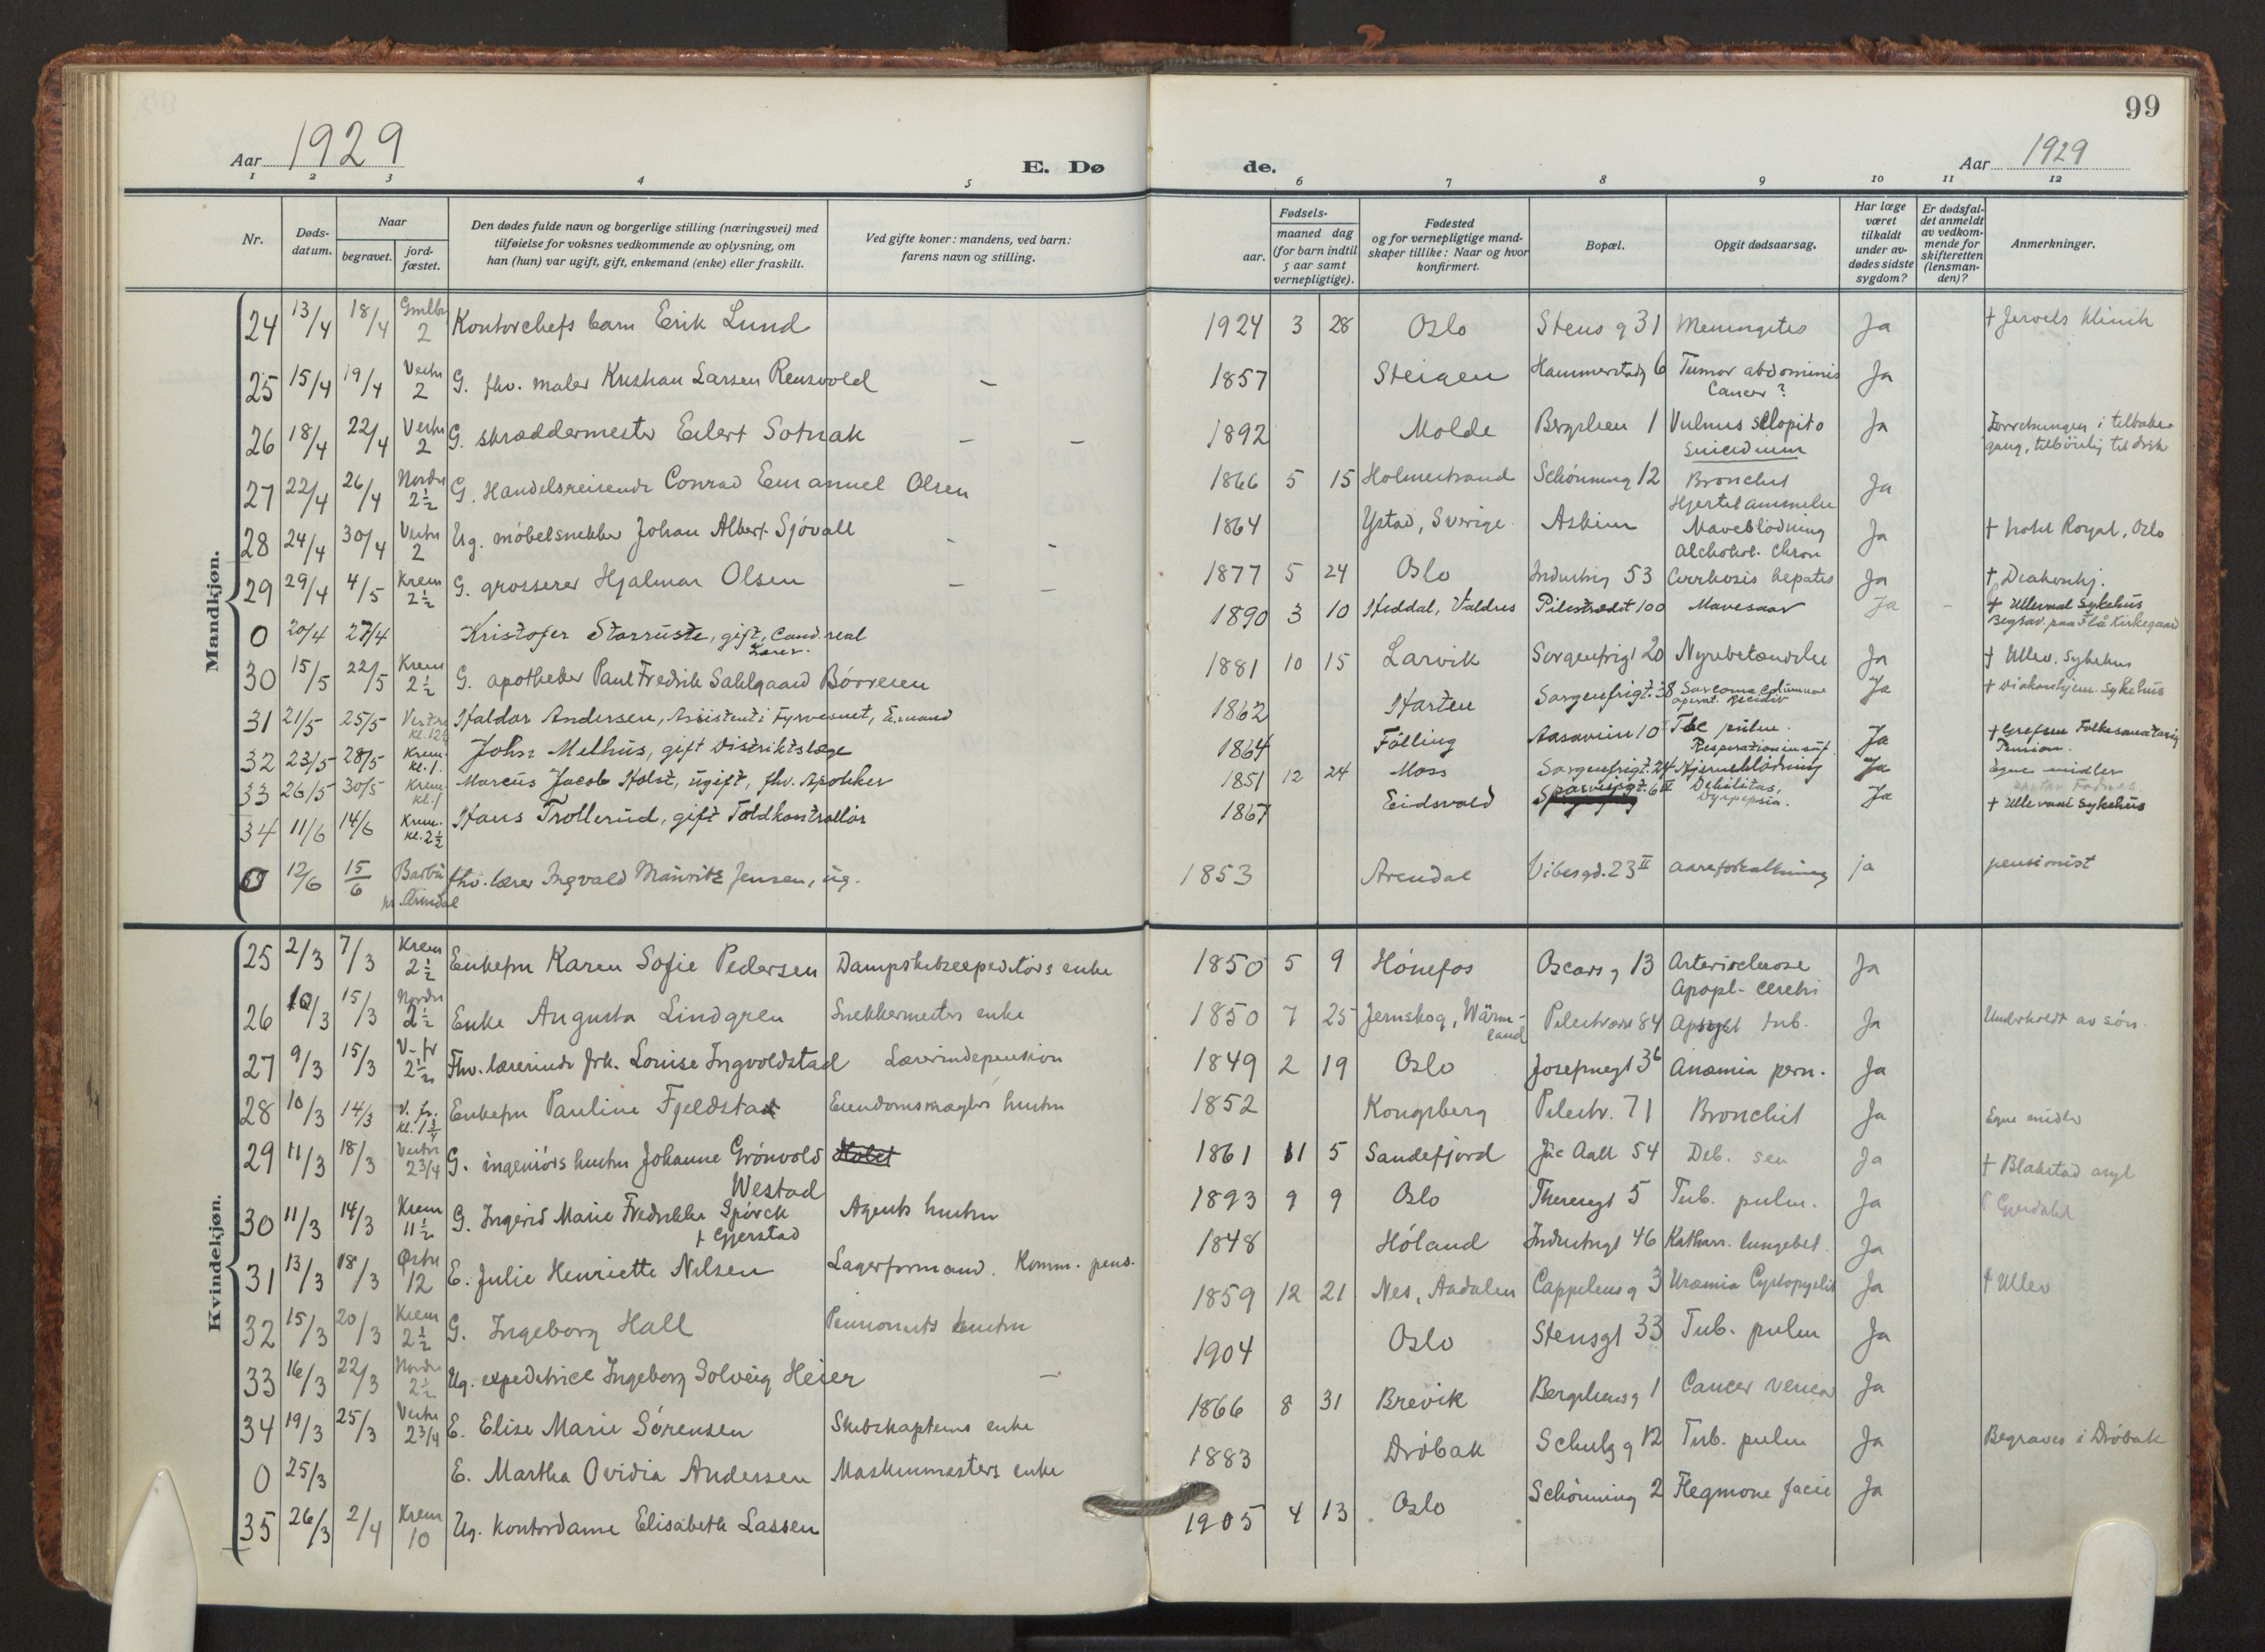 99
Aar 1929
E. Dø
de.
Aar 1929
1 2 3 4 5 6 7 8 9 10 11 12
Nr.
Døds-
datum.
Naar
begravet.
jord-
fæstet.
Den dødes fulde navn og borgerlige stilling (næringsvei) med
tilføielse for voksnes vedkommende av oplysning, om
han (hun) var ugift, gift, enkemand (enke) eller fraskilt.
Ved gifte koner: mandens, ved barn:
farens navn og stilling.
Fødsels-
aar.
maaned dag
(for barn indtil
5 aar samt
vernepligtige).
Fødested
og for vernepligtige mand-
skaper tillike: Naar og hvor
konfirmert.
Bopæl.
Opgit dødsaarsag.
Har læge
været
tilkaldt
under av-
dødes sidste
sygdom?
Er dødsfal-
det anmeldt
av vedkom-
mende for
skifteretten
(lensman-
den)?
Anmerkninger.
Mandkjøn.
24 13/4 18/4 Gmlb 2 Kontorchefs barn Erik Lund 1924 3 28 Oslo Stens g 31 Meningites Ja † Jervels klinik
25 15/4 19/4 Vestre 2 G. fhv. maler Kristian Larsen Rensvold – 1857 Steigen Hammerstadg 6 Tumor abdominis Ja
Cancer?
26 18/4 22/4 Vestre 2 G. skræddermester Eilert Sotnak – – 1892 Molde Bergslien 1 Vulnus sclopito Ja Forretningen i tilbake-
Suicidium gang, tilbøielig til drik
27 22/4 26/4 Nordre 2½ G. Handelsreisende Conrad Emanuel Olsen 1866 5 15 Holmestrand Schønning 12 Bronchit Ja
Hjertelammelse
28 24/4 30/4 Vestre 2 Ug. møbelsnekker Johan Albert Sjövall - - 1864 Ystad, Sverige Askim Maveblødning Ja † hotel Royal, Oslo
Alchohol. chron
29 29/4 4/5 Krem 2½ G. grosserer Hjalmar Olsen – – 1877 5 24 Oslo Industrig 53 Cirrhosis hepatis Ja † Diakonhj.
0 20/4 27/4 Kristofer Starruste, gift, cand. real 1890 3 10 Heddal, Valdres Pilestrædet 100 Mavesaar Ja - † Ullevaal Sykehus
Lærer. Begrav. paa Flå Kirkegaard
30 15/5 22/5 Krem 2½ G. apotheker Paul Fredrik Sahlgaard Børresen 1881 10 15 Larvik Sorgenfrigt 20 Nyrebetændelse Ja † Ullev. Sykehus
31 21/5 25/5 Vestre kl. 12½ Haldor Andersen, Assistent i Fyrvesnet, E.mand 1862 Karten Sorgenfrigt. 38 Sarcoma columnae Ja † Diakonhjem. Sykehus
operat. Recidiv
32 23/5 28/5 Krem. kl. 1. John Melhus, gift Distriktslæge 1864 Fölling Aasaveien 10 Tbc pulm. Ja † Grefsen Folkesanatorie
Respiration insuf. Pension.
33 26/5 30/5 Krem. kl. 1 Marcus Jacob Holst, ugift, fhv. Apotheker 1851 12 24 Moss Sorgenfrigt. 24 Hjerneblödning Ja Egne midler
34 11/6 14/6 Krem. kl. 2½ Hans Trollerud, gift Toldkontrollör 1867 Eidsvold 6 II Debilitas, Ja † Ullevaal Sykehus
Dyspepsia.
0 12/6 15/6 Barbu fhv. lærer Ingvald Mauritz Jensen, ug. 1853 Arendal Vibesgd. 23 II aareforkalkning ja pensionist
pr. Arendal
Kvindekjøn.
25 2/3 7/3 Krem 2½ Enkefru Karen Sofie Pedersen Dampskibsexpeditørs enke 1850 5 9 Hønefos Oscars g 13 Arteriosclerose Ja
Apopl- cerebri
26 10/3 15/3 Nordre 2½ Enke Augusta Lindgren Snekkermesters enke 1850 7 25 Jernskog, Wärm- Pilestræde 84 Ja Underholdt av søn.
land
27 9/3 15/3 V. fr 2½ Fhv. lærerinde frk. Louise Ingvoldstad Lærerindepension 1849 2 19 Oslo Josefinegt 36 Anæmia pern. Ja
28 10/3 14/3 V. fr. kl. 1¾ Enkefru Pauline Fjeldstad Eiendomsmæglers hustru 1852 Kongsberg Pilestr. 71 Bronchit Ja Egne midler
29 11/3 18/3 Vestre 2 3/4 G. ingeniørs hustru Johanne Grønvold 1861 11 5 Sandefjord Jac Aall 54 Deb. sen Ja † Blakstad asyl
Westad
30 11/3 14/3 Krem 11½ G. Ingerid Marie Fredrikke Spørck Agents hustru 1893 9 9 Oslo Theresegt 5 Tub. pulm. Ja
f Gjerstad
31 13/3 18/3 Østre 12 E. Julie Henriette Nilsen Lagerformand. Komm. pens. 1848 Høland Industrigt 46 Katharr. lungebet. Ja
32 15/3 20/3 Krem 2½ G. Ingeborg Hall Pensionists hustru 1859 12 21 Nes, Aadalen Cappelens g 3 Uræmia Cystopyelit Ja † Ullev
33 16/3 22/3 Nordre 2½ Ug. expeditrice Ingeborg Solveig Heier – 1904 Oslo Stensgt 33 Tub. pulm Ja
34 19/3 25/3 Vestre 2 3/4 E. Elise Marie Sørensen Skibskapteins enke 1866 8 31 Brevik Bergsliensg 1 Cancer Ja
0 25/3 E. Martha Ovidia Andersen Maskinmesters enke 1883 Drøbak Schultz g 12 Tub. pulm Ja Begraves i Drøbak
35 26/3 2/4 Krem 10 Ug. kontordame Elisabeth Lassen 1905 4 13 Oslo Schønning 2 Flegmone facie Ja